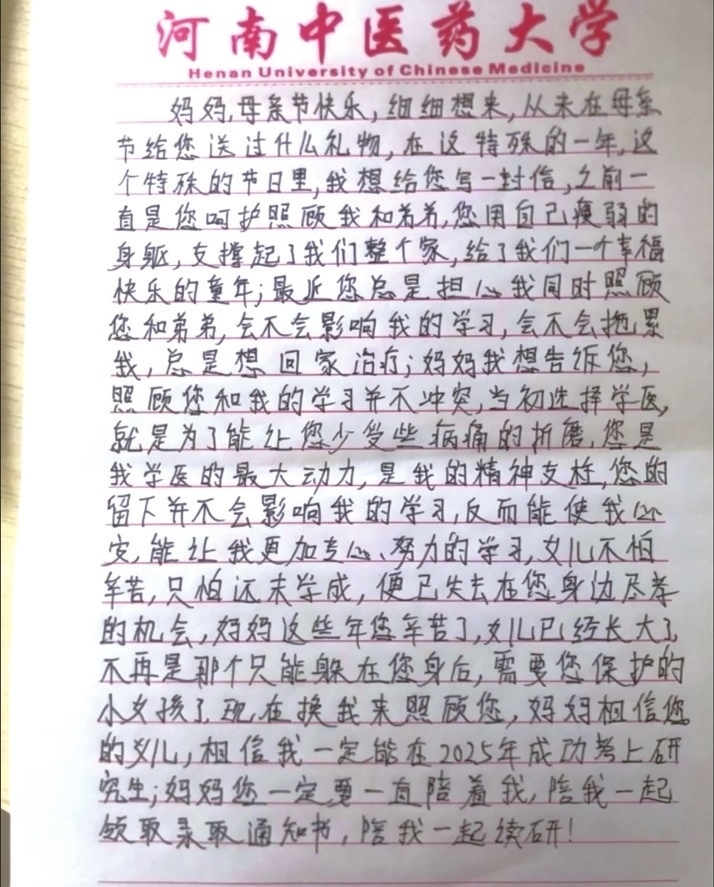 河南中医药大学
Henan University of Chinese Medicine
妈妈,母亲节快乐,细细想来,从未在母亲
节给您送过什么礼物,在这特殊的一年,这
个特殊的节日里,我想给您写一封信,之前一
直是您呵护照顾我和弟弟,您用自己瘦弱的
身躯,支撑起了我们整个家,给了我们一个幸福
快乐的童年;最近您总是担心我同时照顾
您和弟弟,会不会影响我的学习,会不会拖累
我,总是想回家治疗;妈妈我想告诉您,
照顾您和我的学习并不冲突,当初选择学医,
就是为了能让您少受些病痛的折磨,您是
我学医的最大动力,是我的精神支柱,您的
留下并不会影响我的学习,反而能使我心
安,能让我更加专心、努力的学习,女儿不怕
辛苦,只怕还未学成,便已失去在您身边尽孝
的机会,妈妈这些年您辛苦了,女儿已经长大了,
不再是那个只能躲在您身后,需要您保护的
小女孩了,现在换我来照顾您,妈妈相信您
的女儿,相信我一定能在2025年成功考上研
究生;妈妈您一定要一直陪着我,陪我一起
领取录取通知书,陪我一起读研!